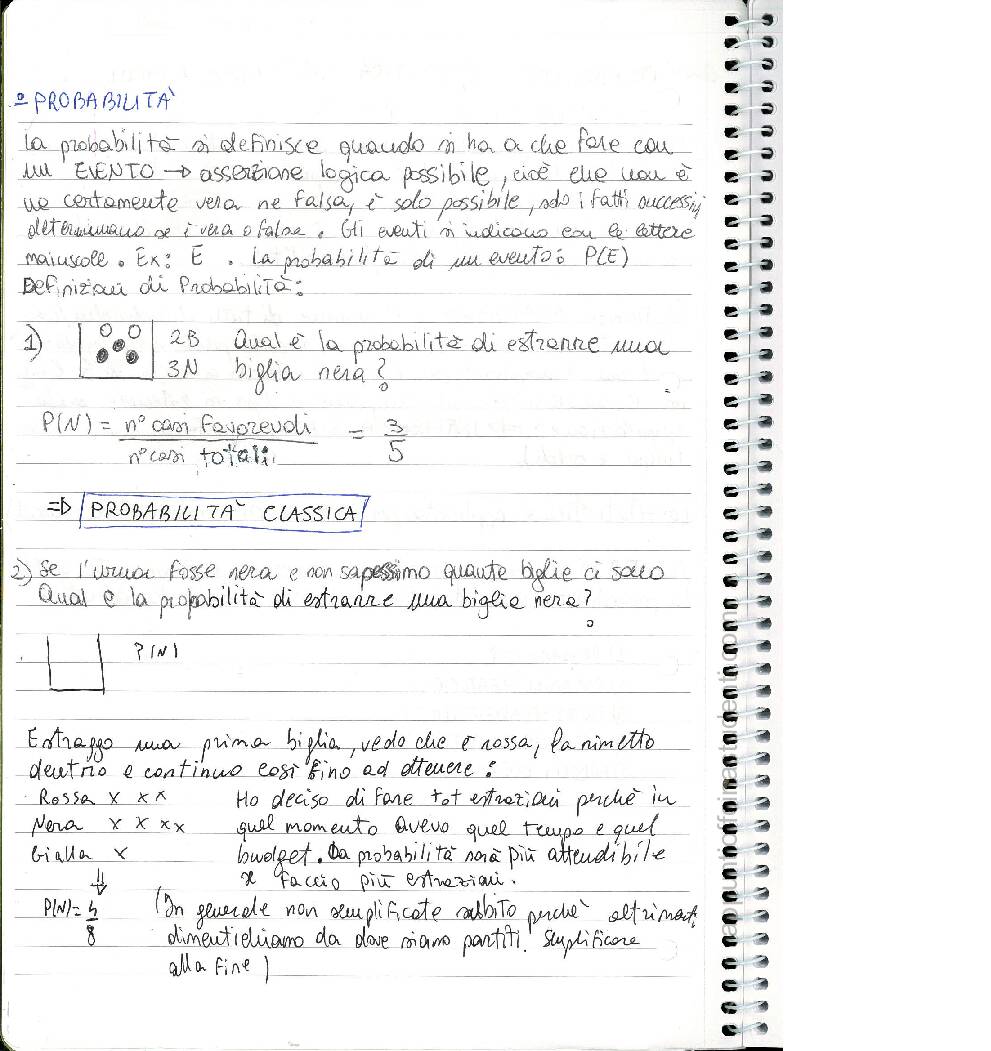 º PROBABILITÀ
La probabilità si definisce quando si ha a che fare con
un EVENTO → asserzione logica possibile, cioè che non è
ne certamente vera ne falsa, è solo possibile, solo i fatti successivi
determinano se è vera o falsa. Gli eventi si indicano con le lettere
maiuscole. Ex: E. La probabilità di un evento: P(E)
Definizioni di Probabilità:
1) 2B Qual è la probabilità di estrarre una
3N biglia nera?
P(N) = n° casi favorevoli / n° casi totali = 3/5
⇒ PROBABILITÀ CLASSICA
2) Se l'urna fosse nera e non sapessimo quante biglie ci sono
Qual è la probabilità di estrarre una biglia nera?
P(N)
Estraggo una prima biglia, vedo che è rossa, la rimetto
dentro e continuo così fino ad ottenere:
Rossa x x x Ho deciso di fare tot estrazioni perchè in
Nera x x x x quel momento avevo quel tempo e quel
Gialla x budget. La probabilità sarà più attendibile
⇓ se faccio più estrazioni.
P(N) = 4/8 (In generale non semplificate subito perchè altrimenti
dimentichiamo da dove siamo partiti. Semplificare
alla fine)